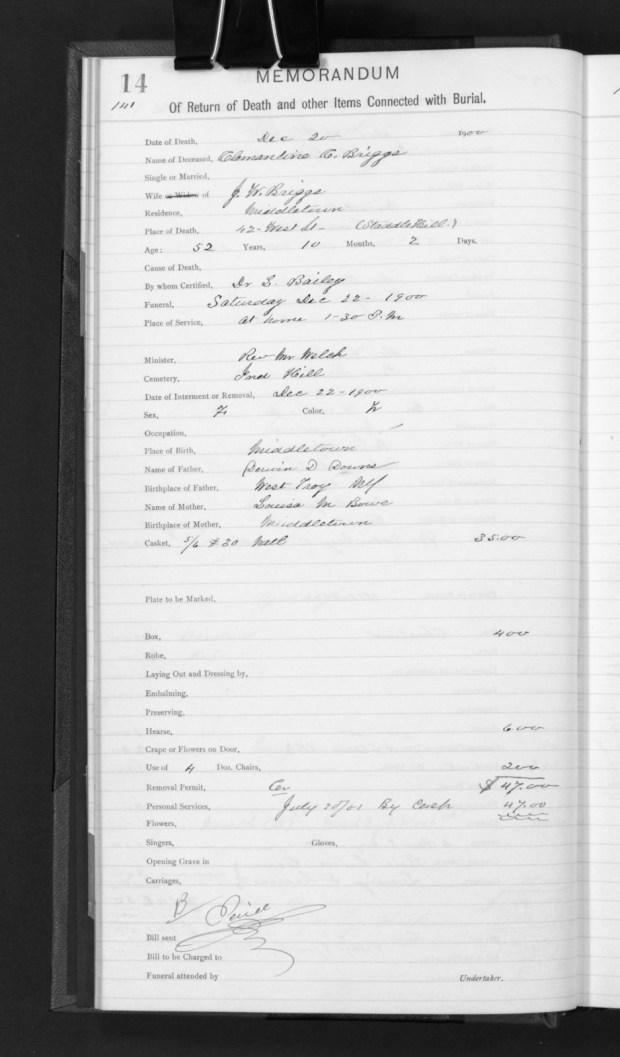 14
MEMORANDUM
141
Of Return of Death and other Items Connected with Burial.
Date of Death, Dec 20 1900
Name of Deceased, Clementine C. Briggs
Single or Married,
Wife or Widow of J. W. Briggs
Residence, Middletown
Place of Death, 42 - West St - (Staddle Hill.)
Age: 52 Years, 10 Months, 2 Days.
Cause of Death,
By whom Certified, Dr S. Bailey
Funeral, Saturday Dec 22 - 1900
Place of Service, At home 1-30 P.M
Minister, Rev Mr Welch
Cemetery, Ind Hill
Date of Interment or Removal, Dec 22 - 1900
Sex, F. Color, W
Occupation,
Place of Birth, Middletown
Name of Father, D Downs
Birthplace of Father, West Troy NY
Name of Mother, Louisa M
Birthplace of Mother, Middletown
Casket, 5/6 #30 35.00
Plate to be Marked,
Box, 400
Robe,
Laying Out and Dressing by,
Embalming,
Preserving,
Hearse, 600
Crape or Flowers on Door,
Use of 4 Doz. Chairs, 200
Removal Permit, Cr $47.00
Personal Services, July 20/01 By Cash 47.00
Flowers,
Singers, Gloves,
Opening Grave in
Carriages,
B Paid
Bill sent
Bill to be Charged to
Funeral attended by Undertaker.